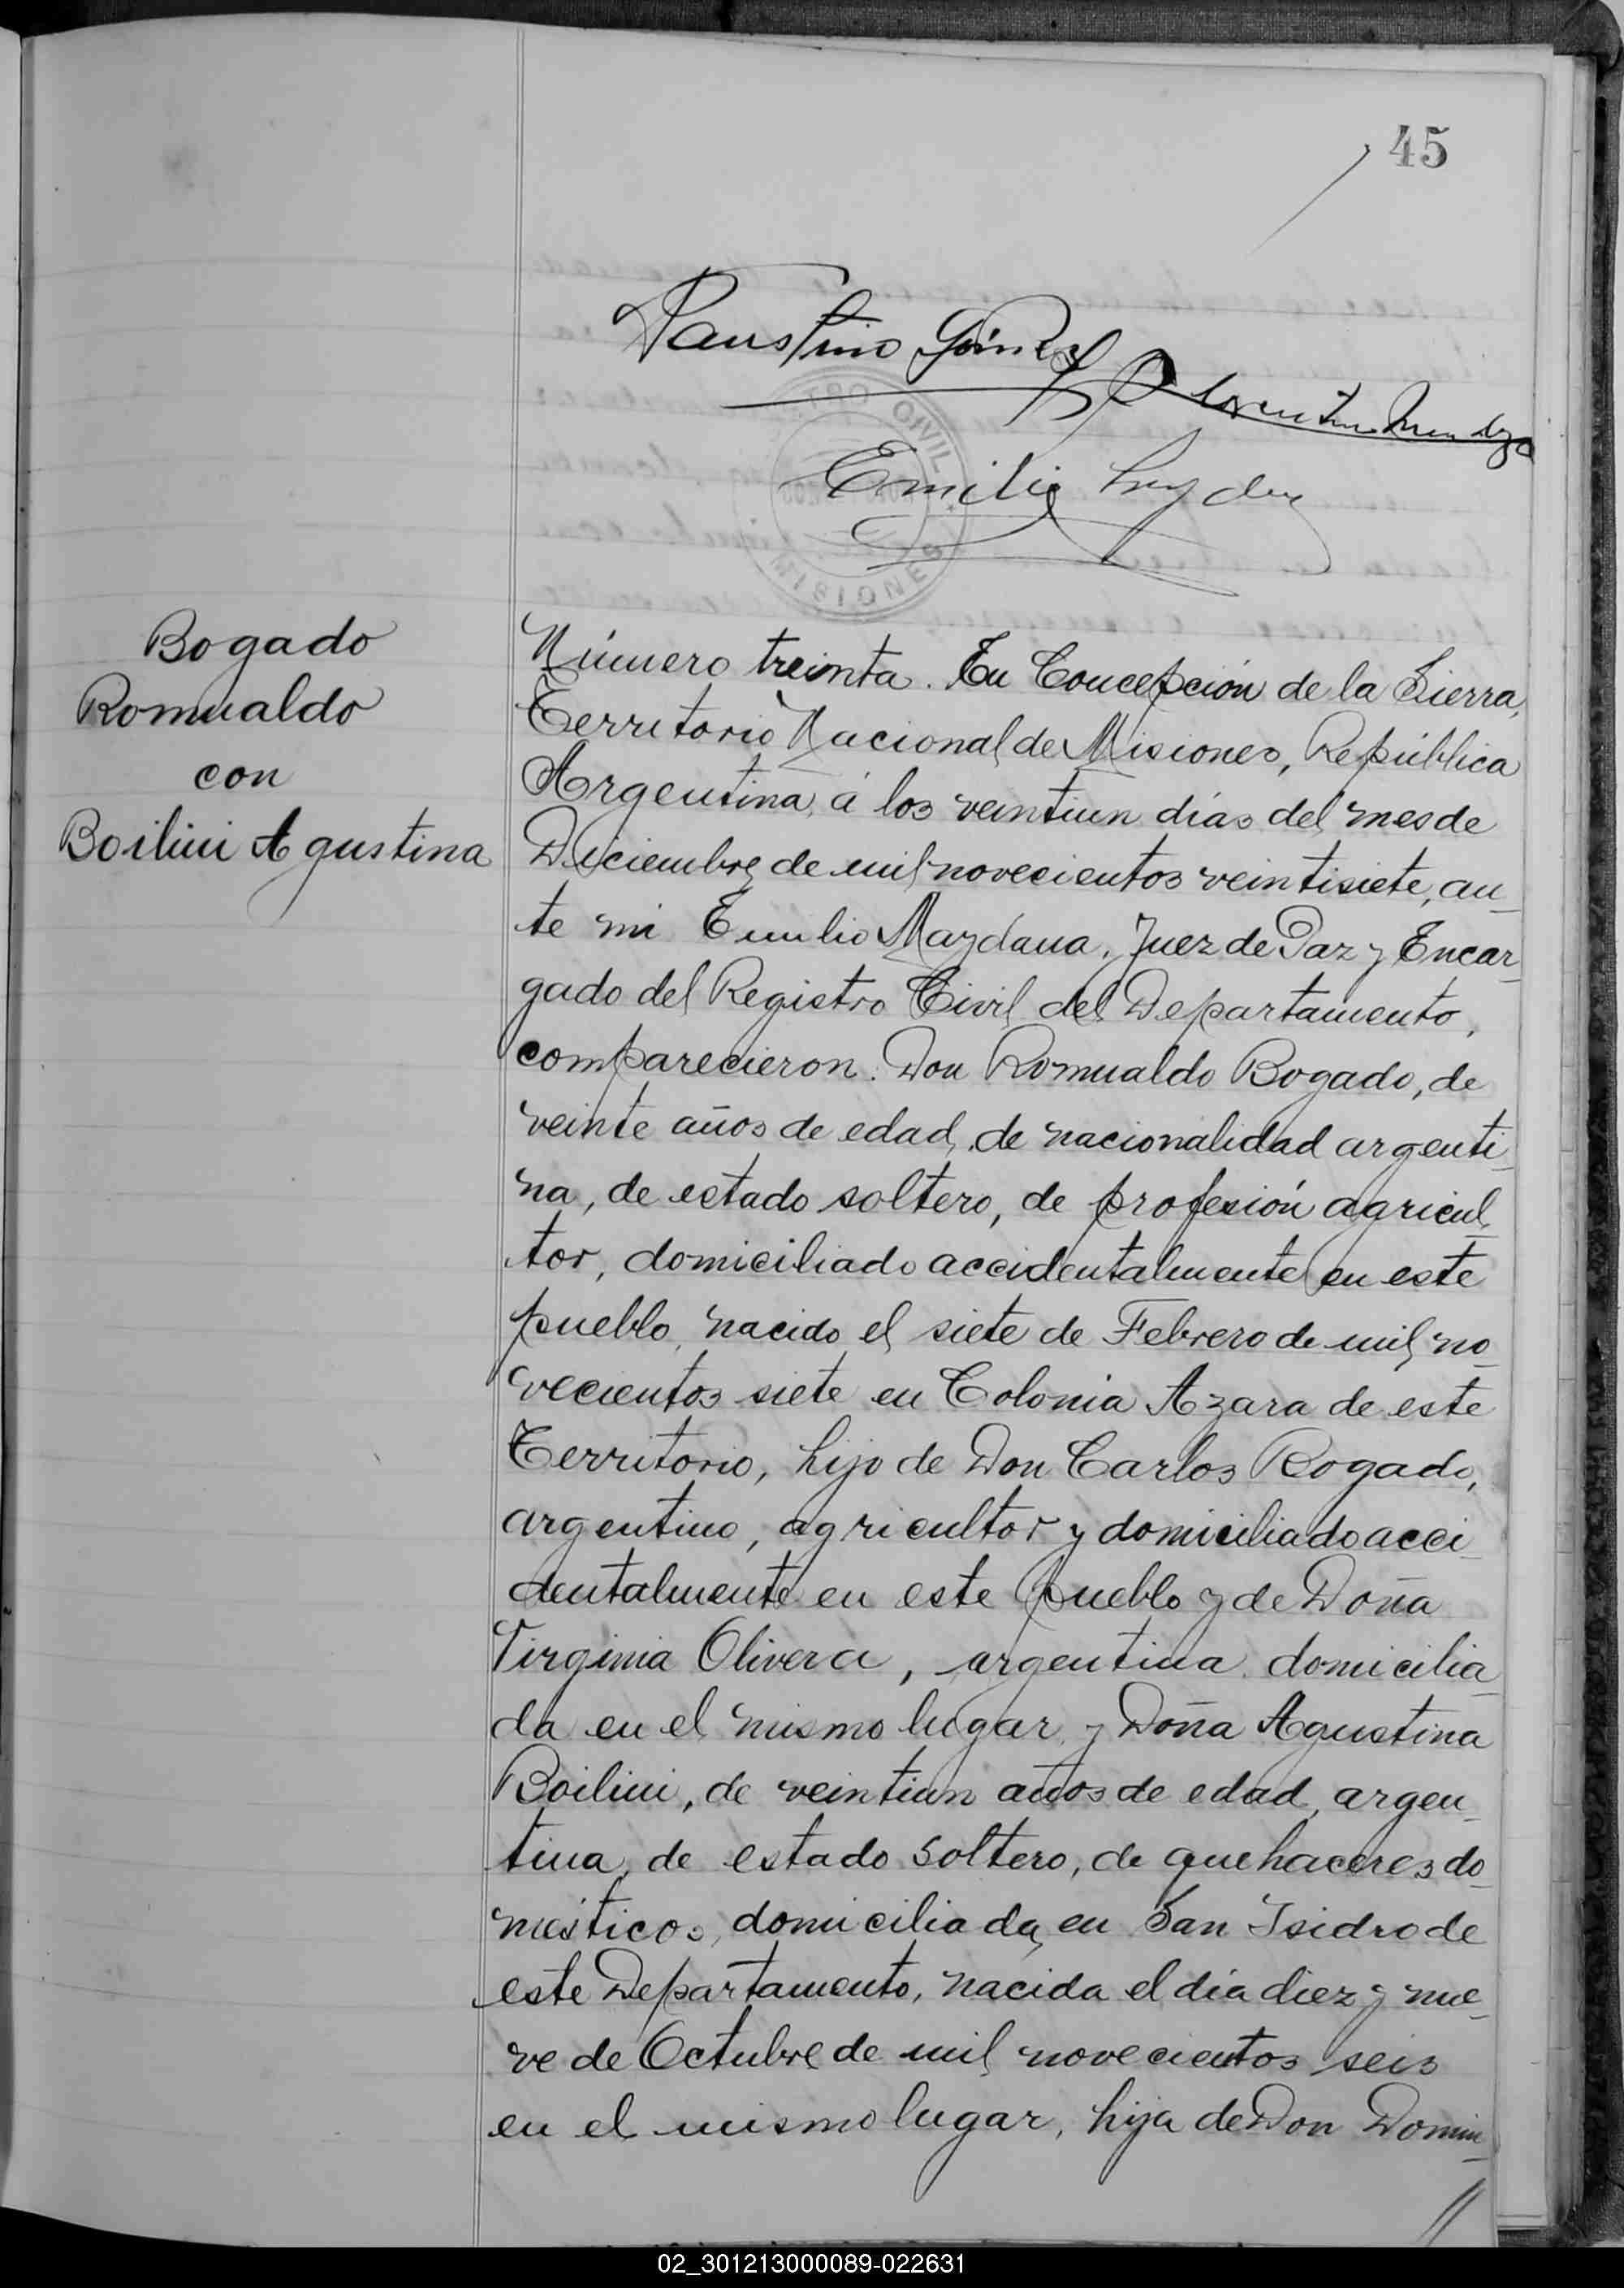 45
Faustino Gómez
Emilio
REGISTRO CIVIL
MISIONES
Bogado
Romualdo
con
Boilini Agustina
Número treinta. En Concepción de la Sierra,
Territorio Nacional de Misiones, República
Argentina, á los veintiun dias del mes de
Diciembre de mil novecientos veintisiete, an-
te mi Emilio Maydana, Juez de Paz y Encar-
gado del Registro Civil del Departamento,
comparecieron: Don Romualdo Bogado, de
veinte años de edad, de nacionalidad argenti-
na, de estado soltero, de profesión agricul-
tor, domiciliado accidentalmente en este
pueblo, nacido el siete de Febrero de mil no-
vecientos siete en Colonia Azara de este
Territorio, hijo de Don Carlos Bogado,
argentino, agricultor y domiciliado acci-
dentalmente en este pueblo y de Doña
Virginia Olivera, argentina domicilia-
da en el mismo lugar, y Doña Agustina
Boilini, de veintiun años de edad, argen-
tina, de estado soltero, de quehaceres do-
mésticos, domiciliada en San Isidro de
este Departamento, nacida el día diez y nue-
ve de Octubre de mil novecientos seis
en el mismo lugar, hija de Don Domin-
02_301213000089-022631